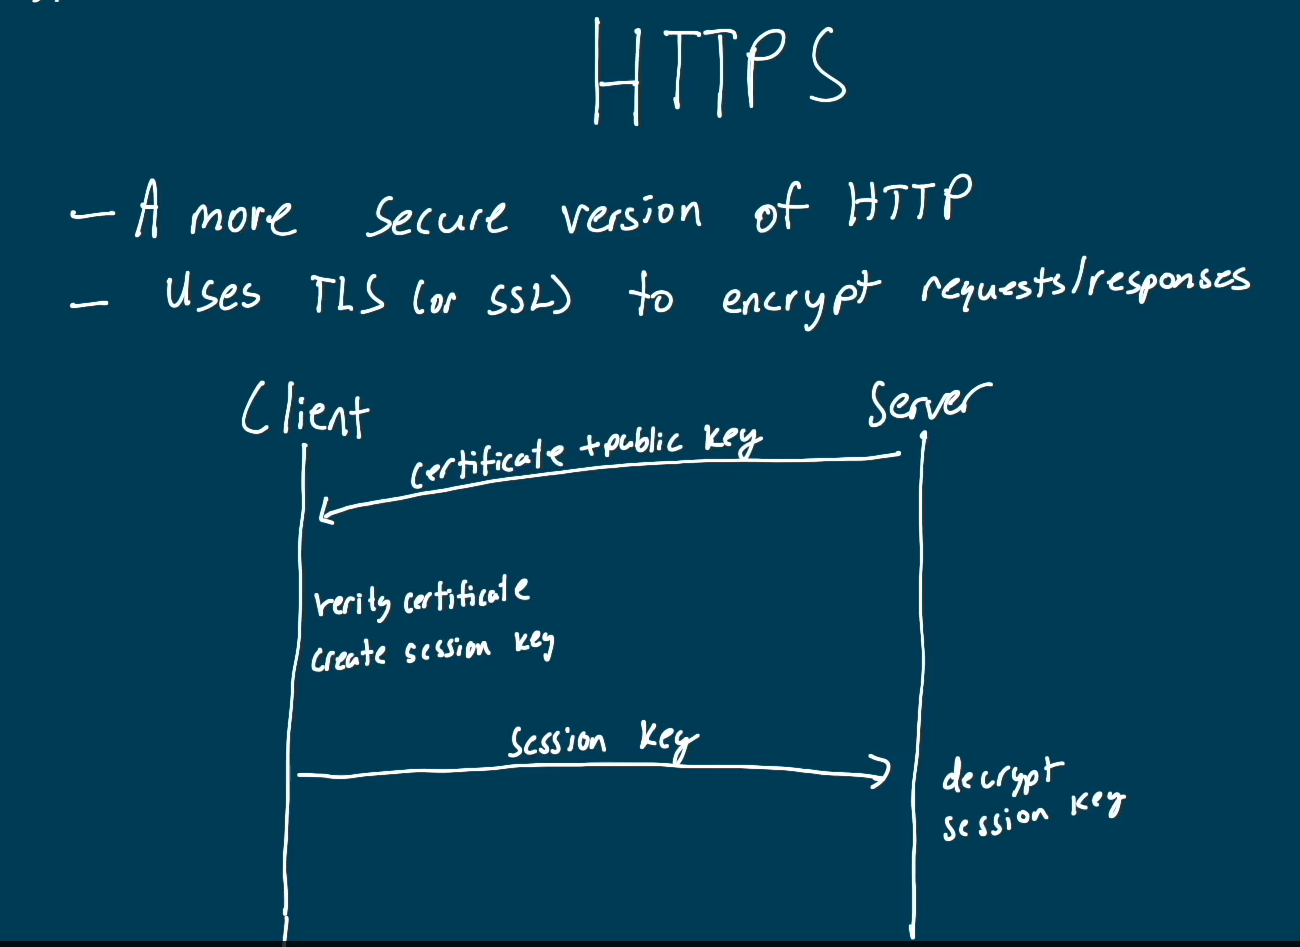 HTTPS
- A more secure version of HTTP
- Uses TLS (or SSL) to encrypt requests/responses
Client
Server
certificate + public key
verify certificate
create session key
session key
decrypt
session key